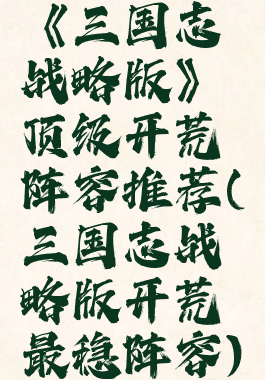 《三国志
战略版》
顶级开荒
阵容推荐(
三国志战
略版开荒
最稳阵容)